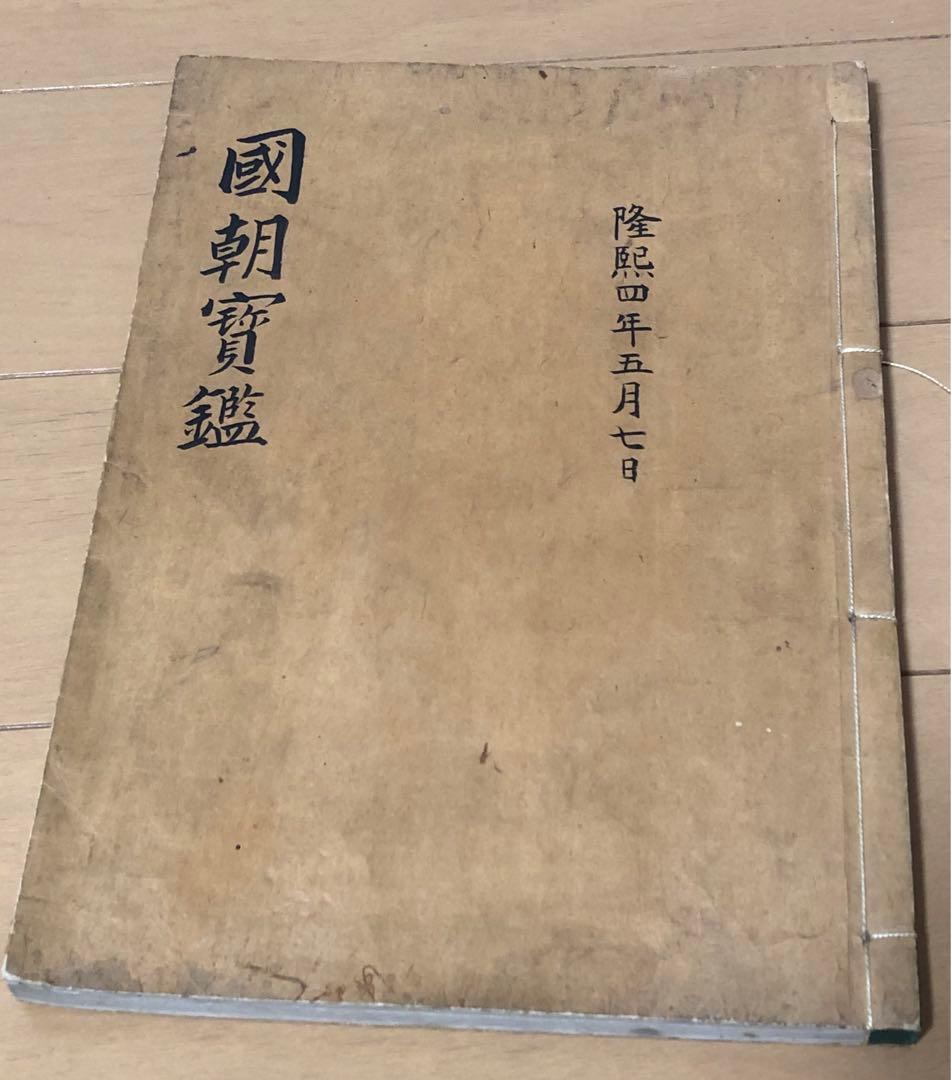 隆熙四年五月七日
國朝寶鑑